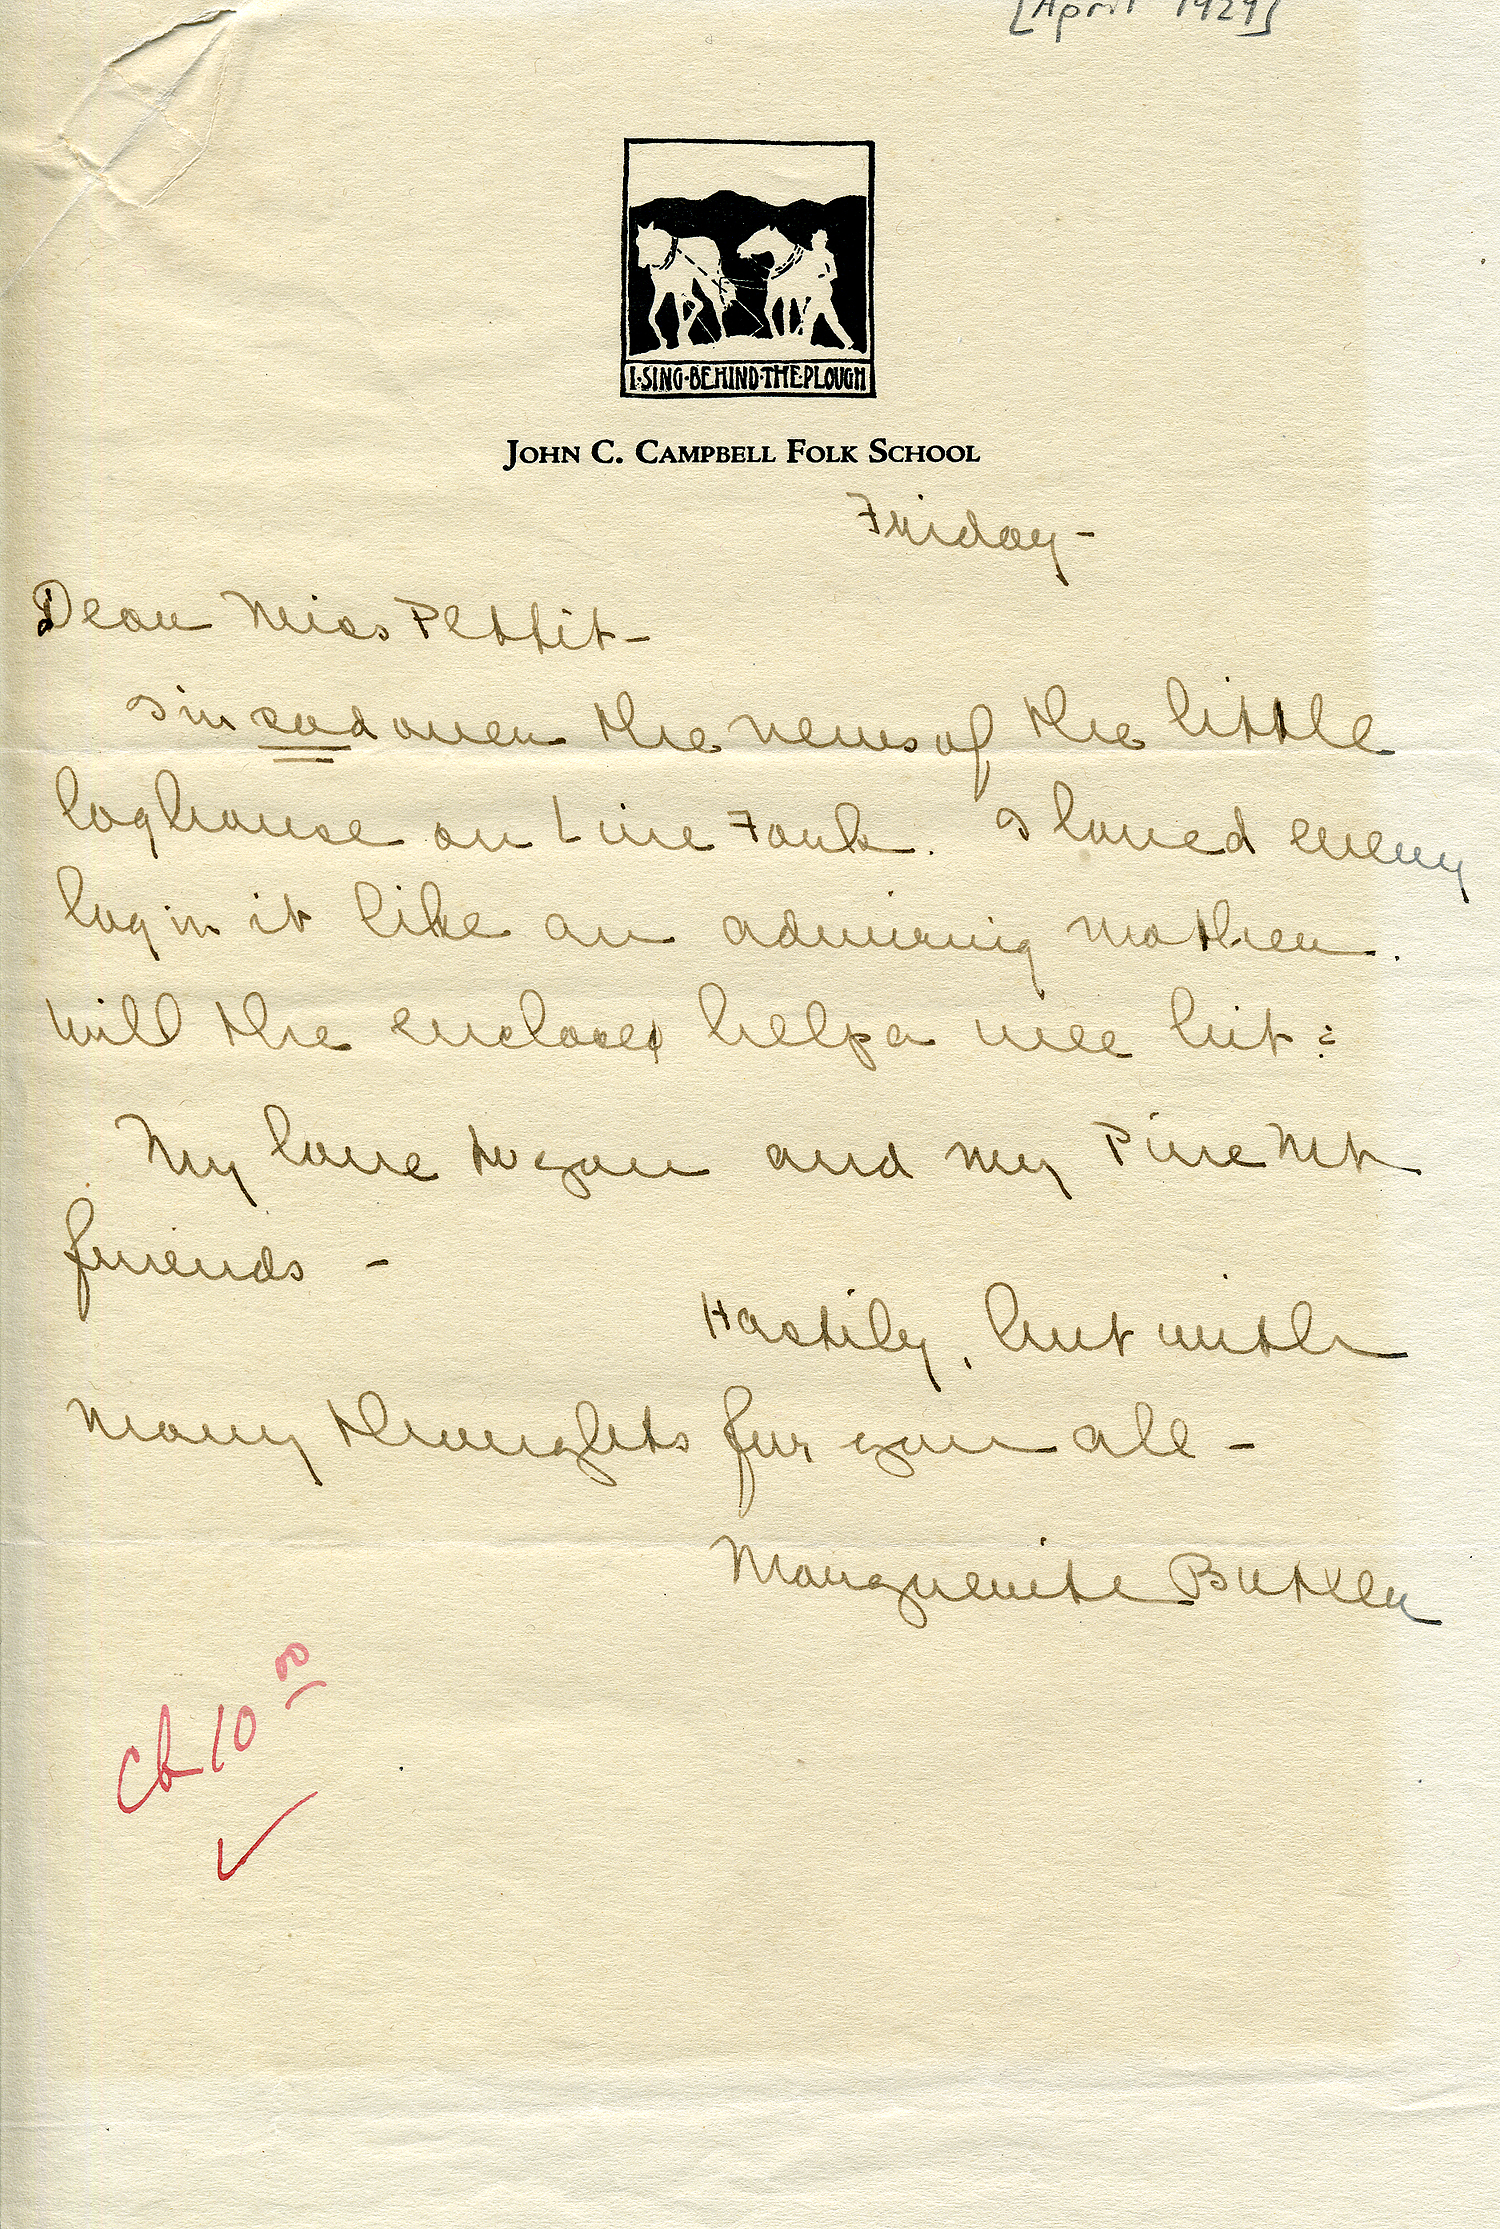 [April 1929]
I·SING·BEHIND·THE·PLOUGH
JOHN C. CAMPBELL FOLK SCHOOL
Friday -
Dear Miss Pettit -
I'm sad over the news of the little
loghouse on Line Fork. I loved every
log in it like an admiring mother.
Will the enclosed help a wee bit?
My love to you and my Pine Mt
friends -
Hastily, but with
many thoughts for you all -
Marguerite Butler
Ck 10 00